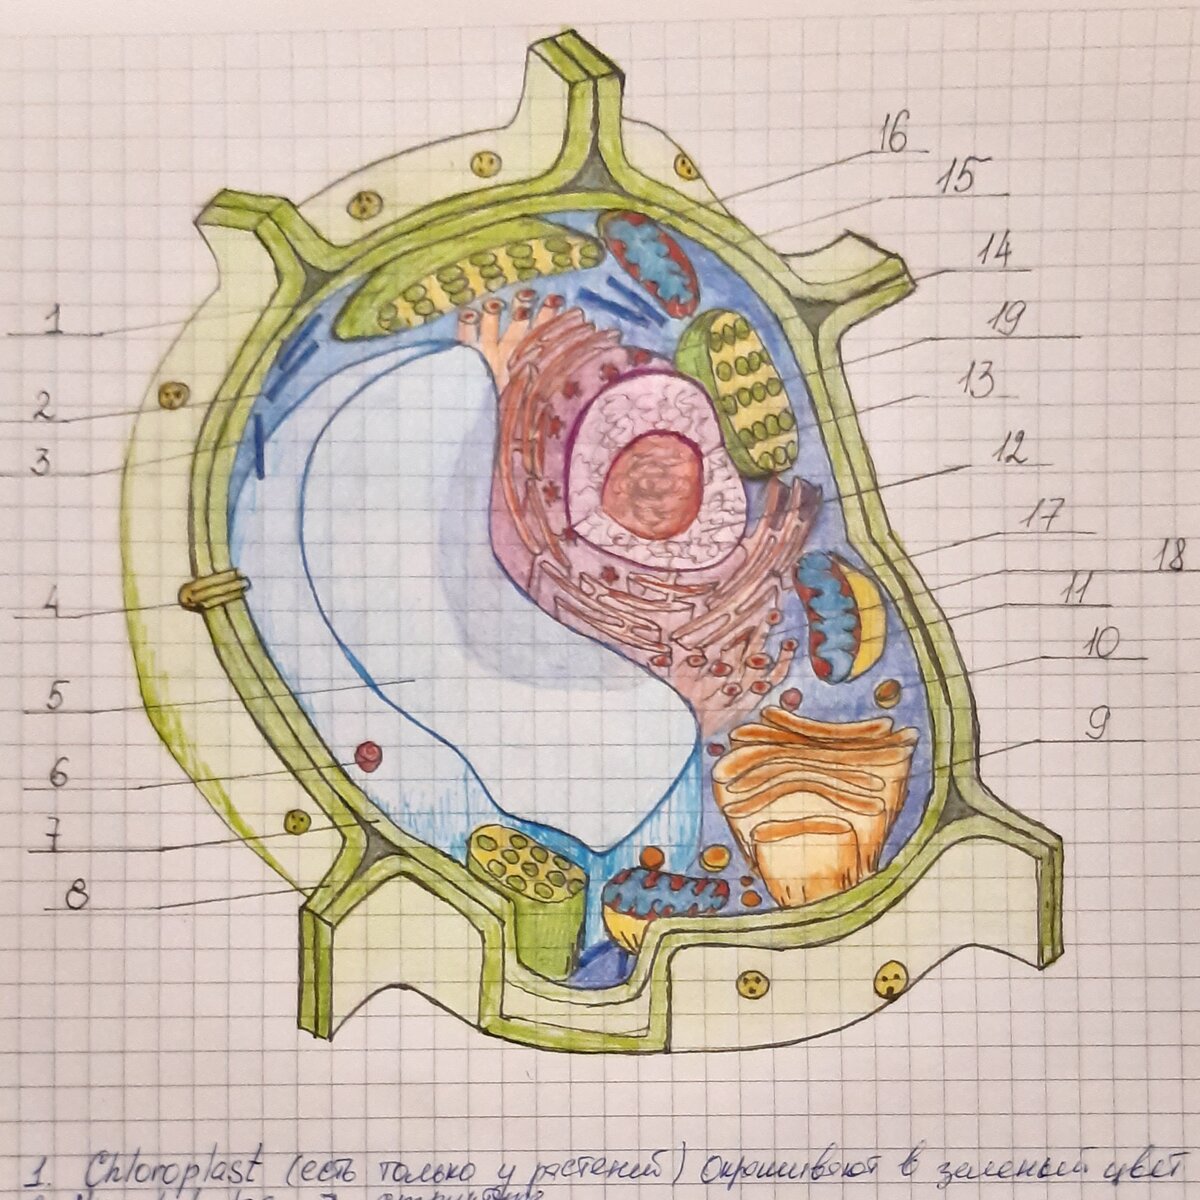 16
15
14
1
19
13
2
12
3
17
18
4
11
10
5
9
6
7
8
1. Chloroplast (есть только у растений) окрашивают в зеленый цвет